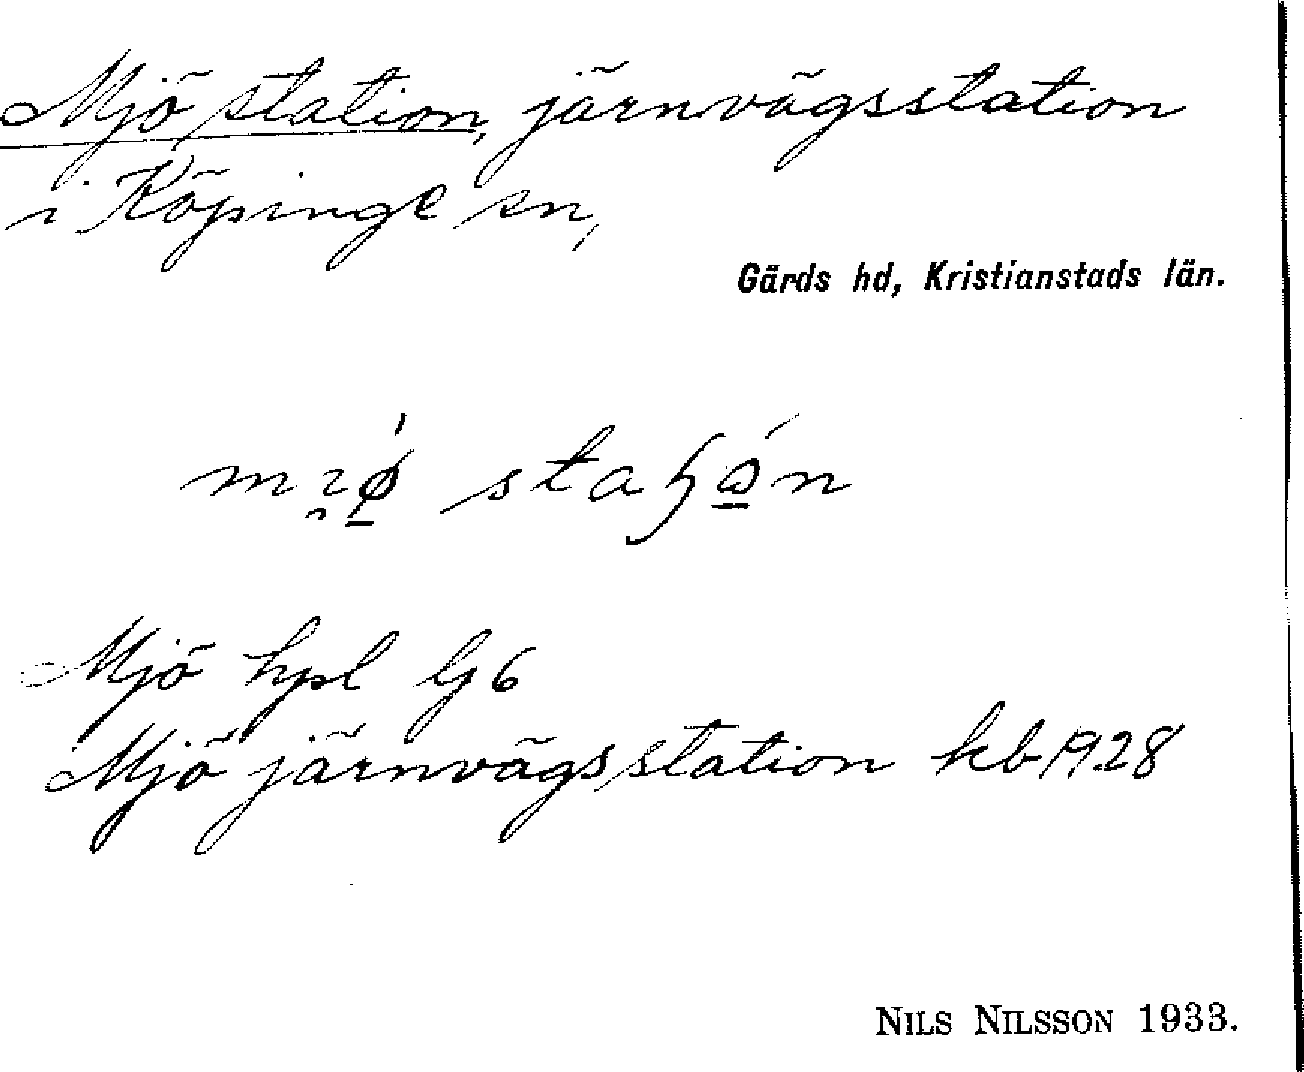 Mjö station, järnvägsstation
i Köpinge sn,
Gärds hd, Kristianstads län.
Mjö hpl Gj 6
Mjö järnvägsstation kb 1928
NILS NILSSON 1933.